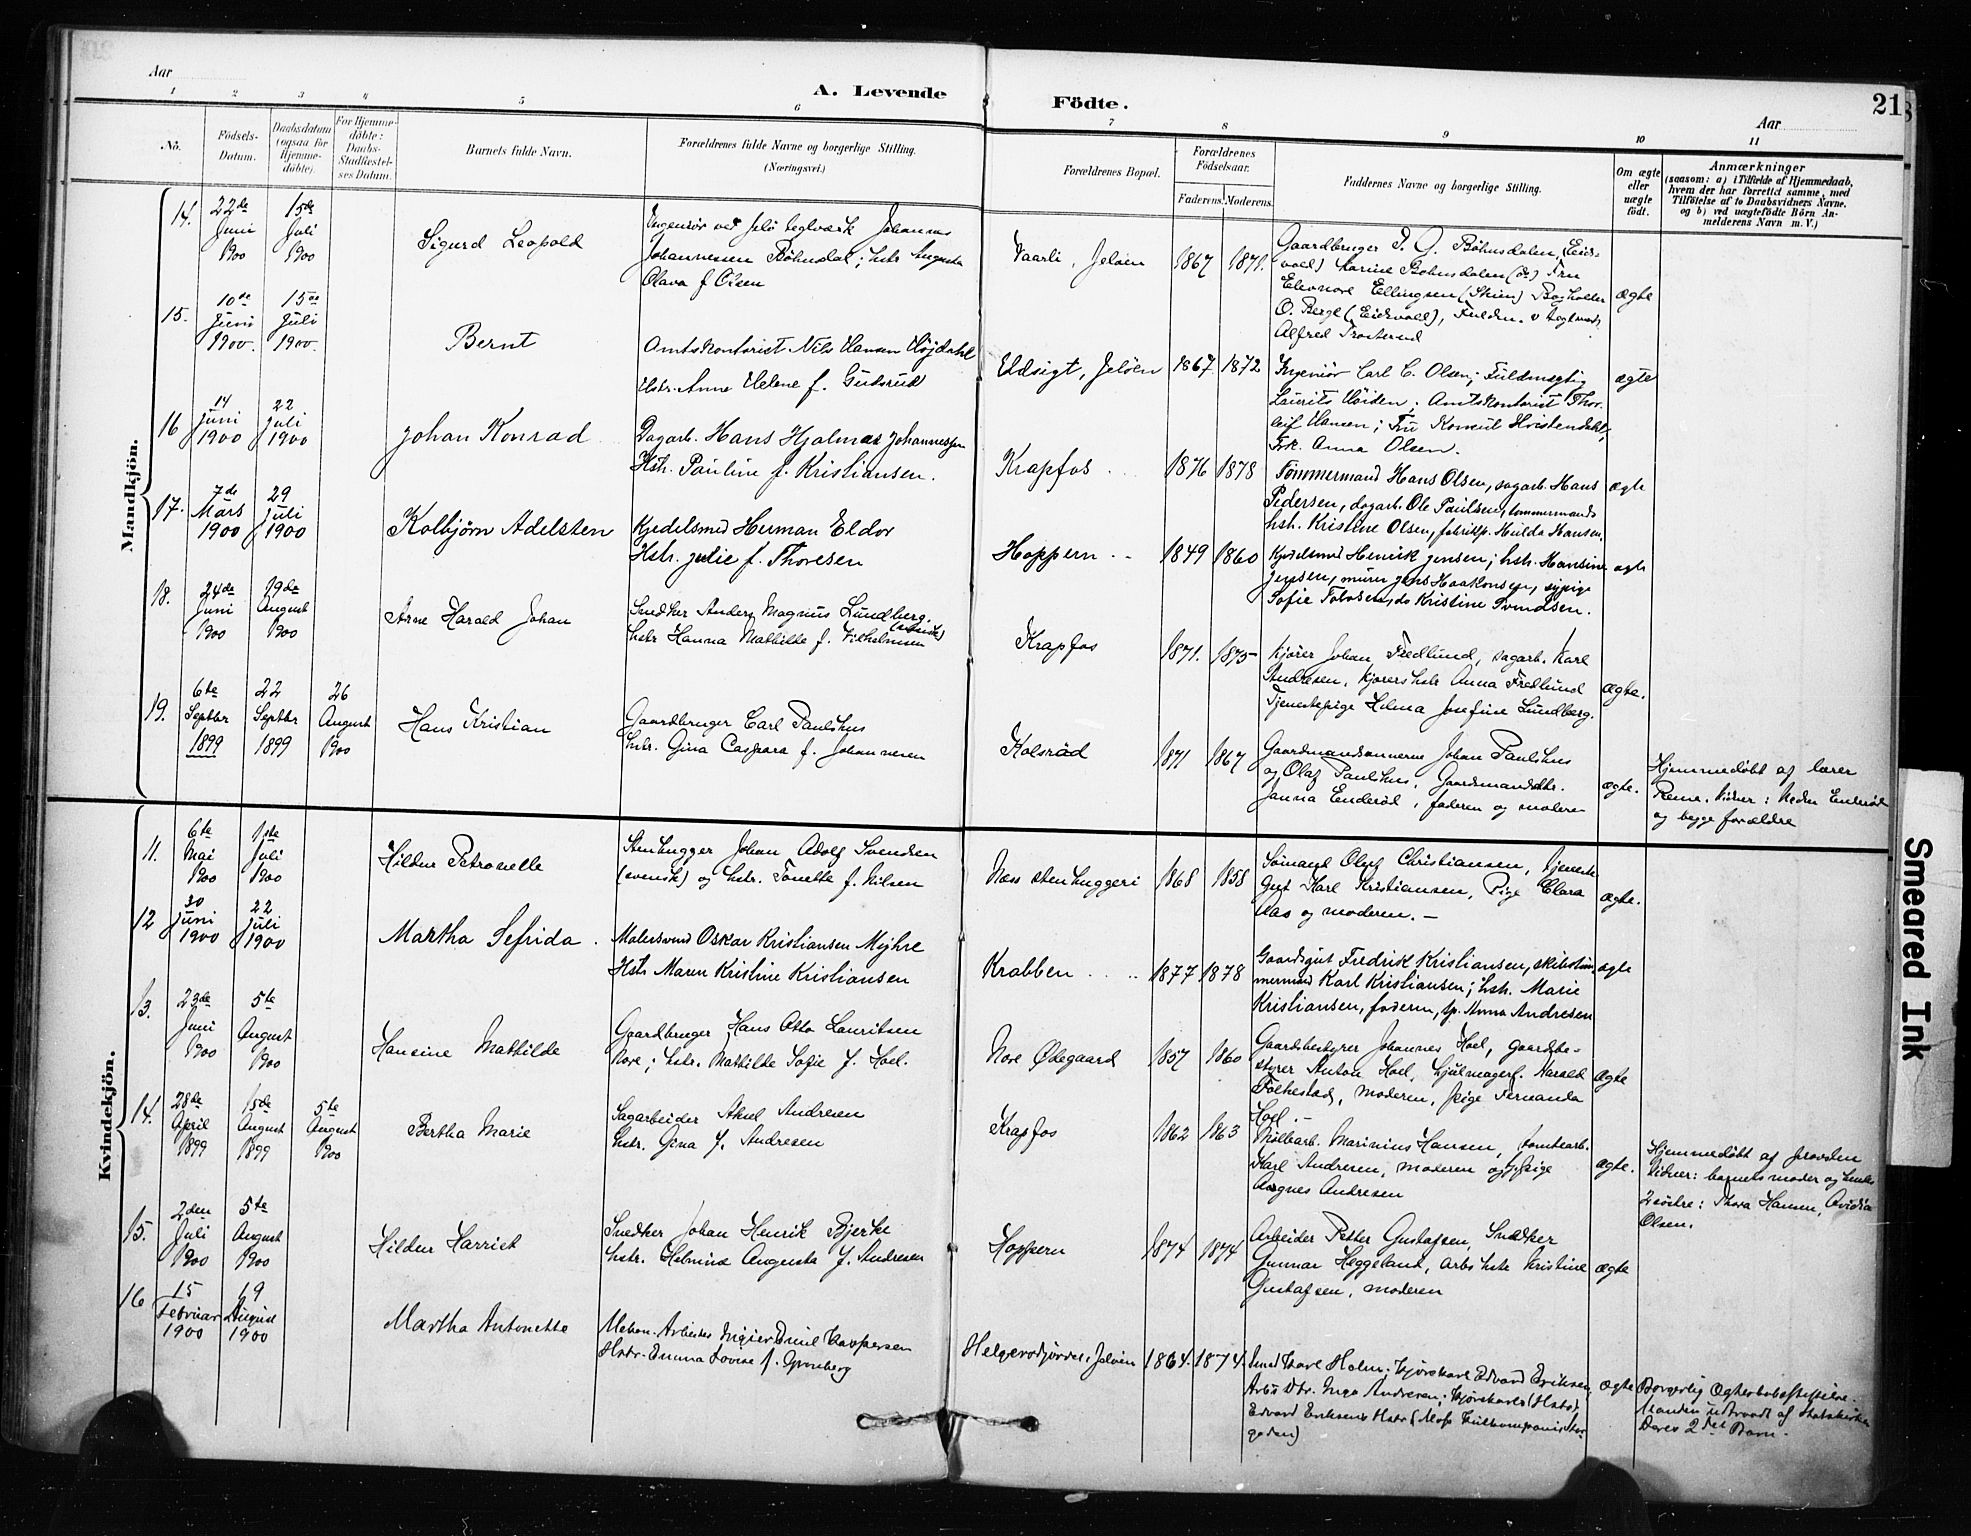 21
Aar
A. Levende Födte.
Aar
1 2 3 4 5 6 7 8 9 10 11
No.
Födsels-Datum.
Daabsdatum (ogsaa for Hjemme-döbte).
For Hjemme-döbte: Daabs-Stadfæstel-ses Datum.
Barnets fulde Navn.
Forældrenes fulde Navne og borgerlige Stilling.
(Næringsvei.)
Forældrenes Bopæl.
Forældrenes Födselsaar.
Faderens. Moderens.
Faddernes Navne og borgerlige Stilling.
Om ægte eller uægte födt.
Anmærkninger
(saasom: a) i Tilfælde af Hjemmedaab,
hvem der har forrettet samme, med
Tilföielse af to Daabsvidners Navne.
og b) ved uægtefödte Börn An-
melderens Navn m. V.)
Mandkjön.
14. 22de Juni 1900 15de Juli 1900
Sigurd Leopold
Ingeniør ved Jelø teglværk Johannes
Johannessen Bøhnsdal; hstr Augusta
Olava f Olsen
Vaarli, Jeløen 1867 1871.
Gaardbruger J. G. Bøhnsdalen, (Eids-
vold) Karine Bøhnsdalen (do) Fru
Eleonore Ellingsen (Skien) Bogholder
O. Berge (Eidsvold), Fuldm. v
Alfred Trosterud
ægte
15. 10de Juni 1900. 15de Juli 1900.
Bernt
Amtskontorist Nils Hansen Højdahl
Hstr. Anne Helene f. Gudsrud
Udsigt, Jeløen 1867 1872
Ingeniør Carl C. Olsen; Fuldmægtig
Laurits Høiden; Amtskontorist Thor-
leif Hansen; Fru Konsul Kristendahl;
Frk. Anna Olsen.
ægte
16 14 Juni 1900 22 Juli 1900
Johan Konrad
Dagarb. Hans Hjalmar Johannessen
Hstr. Pauline f. Kristiansen.
Krapfos 1876 1878
Tømmermand Hans Olsen, sagarb. Hans
Pedersen, dagarb. Ole Paulsen, tømmermands
hst. Kristine Olsen, fabrikp. Hulda Hansen.
ægte
17. 7de Mars 1900 29 Juli 1900
Kolbjørn Adelsten
Kjedelsmed Herman Eldor
Hstr. Julie f. Thoresen
Hoppern 1849 1860
Kjedelsmed Henrik Jensen; hstr. Hansine
Jensen, murm Jens Haakonsen, sypige
Sofie Tobiasen, do Kristine Svendsen.
ægte
18. 24de Juni 1900 19de August 1900
Arne Harald Johan
Snedker Anders Magnus Lundberg.
(svensk)
hstr Hanna Mathilde f. Vilhelmsen
Krapfos 1871. 1875
Kjører Johan Fredlund, sagarb. Karl
Andresen, kjørers hstr Anna Fredlund
Tjenestepige Hilma Josefine Lundberg.
ægte.
19. 6te Septbr 1899 22 Septbr 1899 26 August 1900
Hans Kristian
Gaardbruger Carl Paulshus
hstr. Gina Caspara f. Johannesen
Kolsrød 1871 1867
Gaardmandsønnerne Johan Paulshus
og Olaf Paulshus, Gaardmandsdtr.
Janna Enderød, faderen og moderen
ægte.
Hjemmedøbt af lærer
Reme. Vidner: Enderød
og begge forældre
Kvindekjön.
11. 6te Mai 1900 1ste Juli 1900
Hildur Petronelle
Stenhugger Johan Adolf Svendsen
(svensk) og hstr. Tonette f. Nilsen
Næss stenhuggeri 1868 1858
Sømand Oluf Christiansen, tjeneste
Gut Karl Kristiansen, Pige Clara
Aas og moderen. —
ægte.
12 30 Juni 1900 22 Juli 1900
Martha Sefrida.
Malersvend Oskar Kristiansen Myhre
Hstr Maren Kristine Kristiansen
Krabben 1877 1878
Gaardsgut Fredrik Kristiansen, skibstøm-
mermand Karl Kristiansen; hst. Marie
Kristiansen, faderen, tp. Anna Andresen
ægte
13. 23de Juni 1900 5te August 1900
Hansine Mathilde
Gaardbruger Hans Otto Lauritsen
Nore; hstr. Mathilde Sofie f. Hoel.
Nore Ødegaard 1857 1860
Gaardbestyrer Johannes Hoel, gaardbe-
styrer Anton Hoel, hjulmagerf. Harald
Folkestad, moderen, pige Fernanda
Hoel. —
ægte
14. 28de April 1899 15de August 1899 5te August 1900
Bertha Marie
Sagarbeider Aksel Andresen
hstr. Gina f. Andresen
Krapfos 1862 1863
Møllearb. Marinius Hansen, tomtearb.
Karl Andresen, moderen og pige
Aagnes Andresen
ægte.
Hjemmedøbt af provsten
Vidner: barnets moder og hendes
2 søstre: Thora Hansen, Ovidia
Olsen.
15. 2den Juli 1900 5te August 1900
Hildur Harriet
Snedker Johan Henrik Bjerke
hstr. Helmine Augusta f. Andresen
Hoppern 1874 1874
Arbeider Petter Gustafsen, Snedker
Gunnar Heggeland, arbs hstr Kristine
Gustafsen, moderen
ægte
16 15 Februar 1900 19 August 1900
Martha Antonette
Mekan. Arbeider Emil Kaspersen
Hstr. Emma Lovise f. Grønberg
Jeløen 1864. 1874.
Smed Karl Holm; Kjørekarl Edvard Eriksen,
Arbs Dtr. Inga Andresen; Kjørekarls (Hstr),
Edvard Eriksens Hstr (Moss
gaden)
ægte
Borgerlig Ægteskabsstiftelse.
Manden udtraadt af Statskirken
Deres 2det Barn.
Smeared Ink